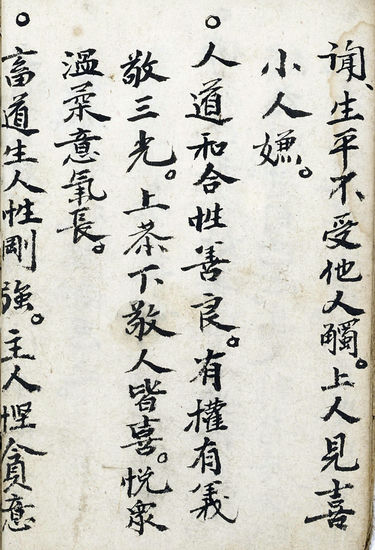 闻、生平不受他人觸。上人見喜
小人嫌。
。人道和合性善良。有權有義
敬三光。上恭下敬人皆喜。悦衆
溫柔意氣長。
。畜道生人性剛强。主人慳貪意